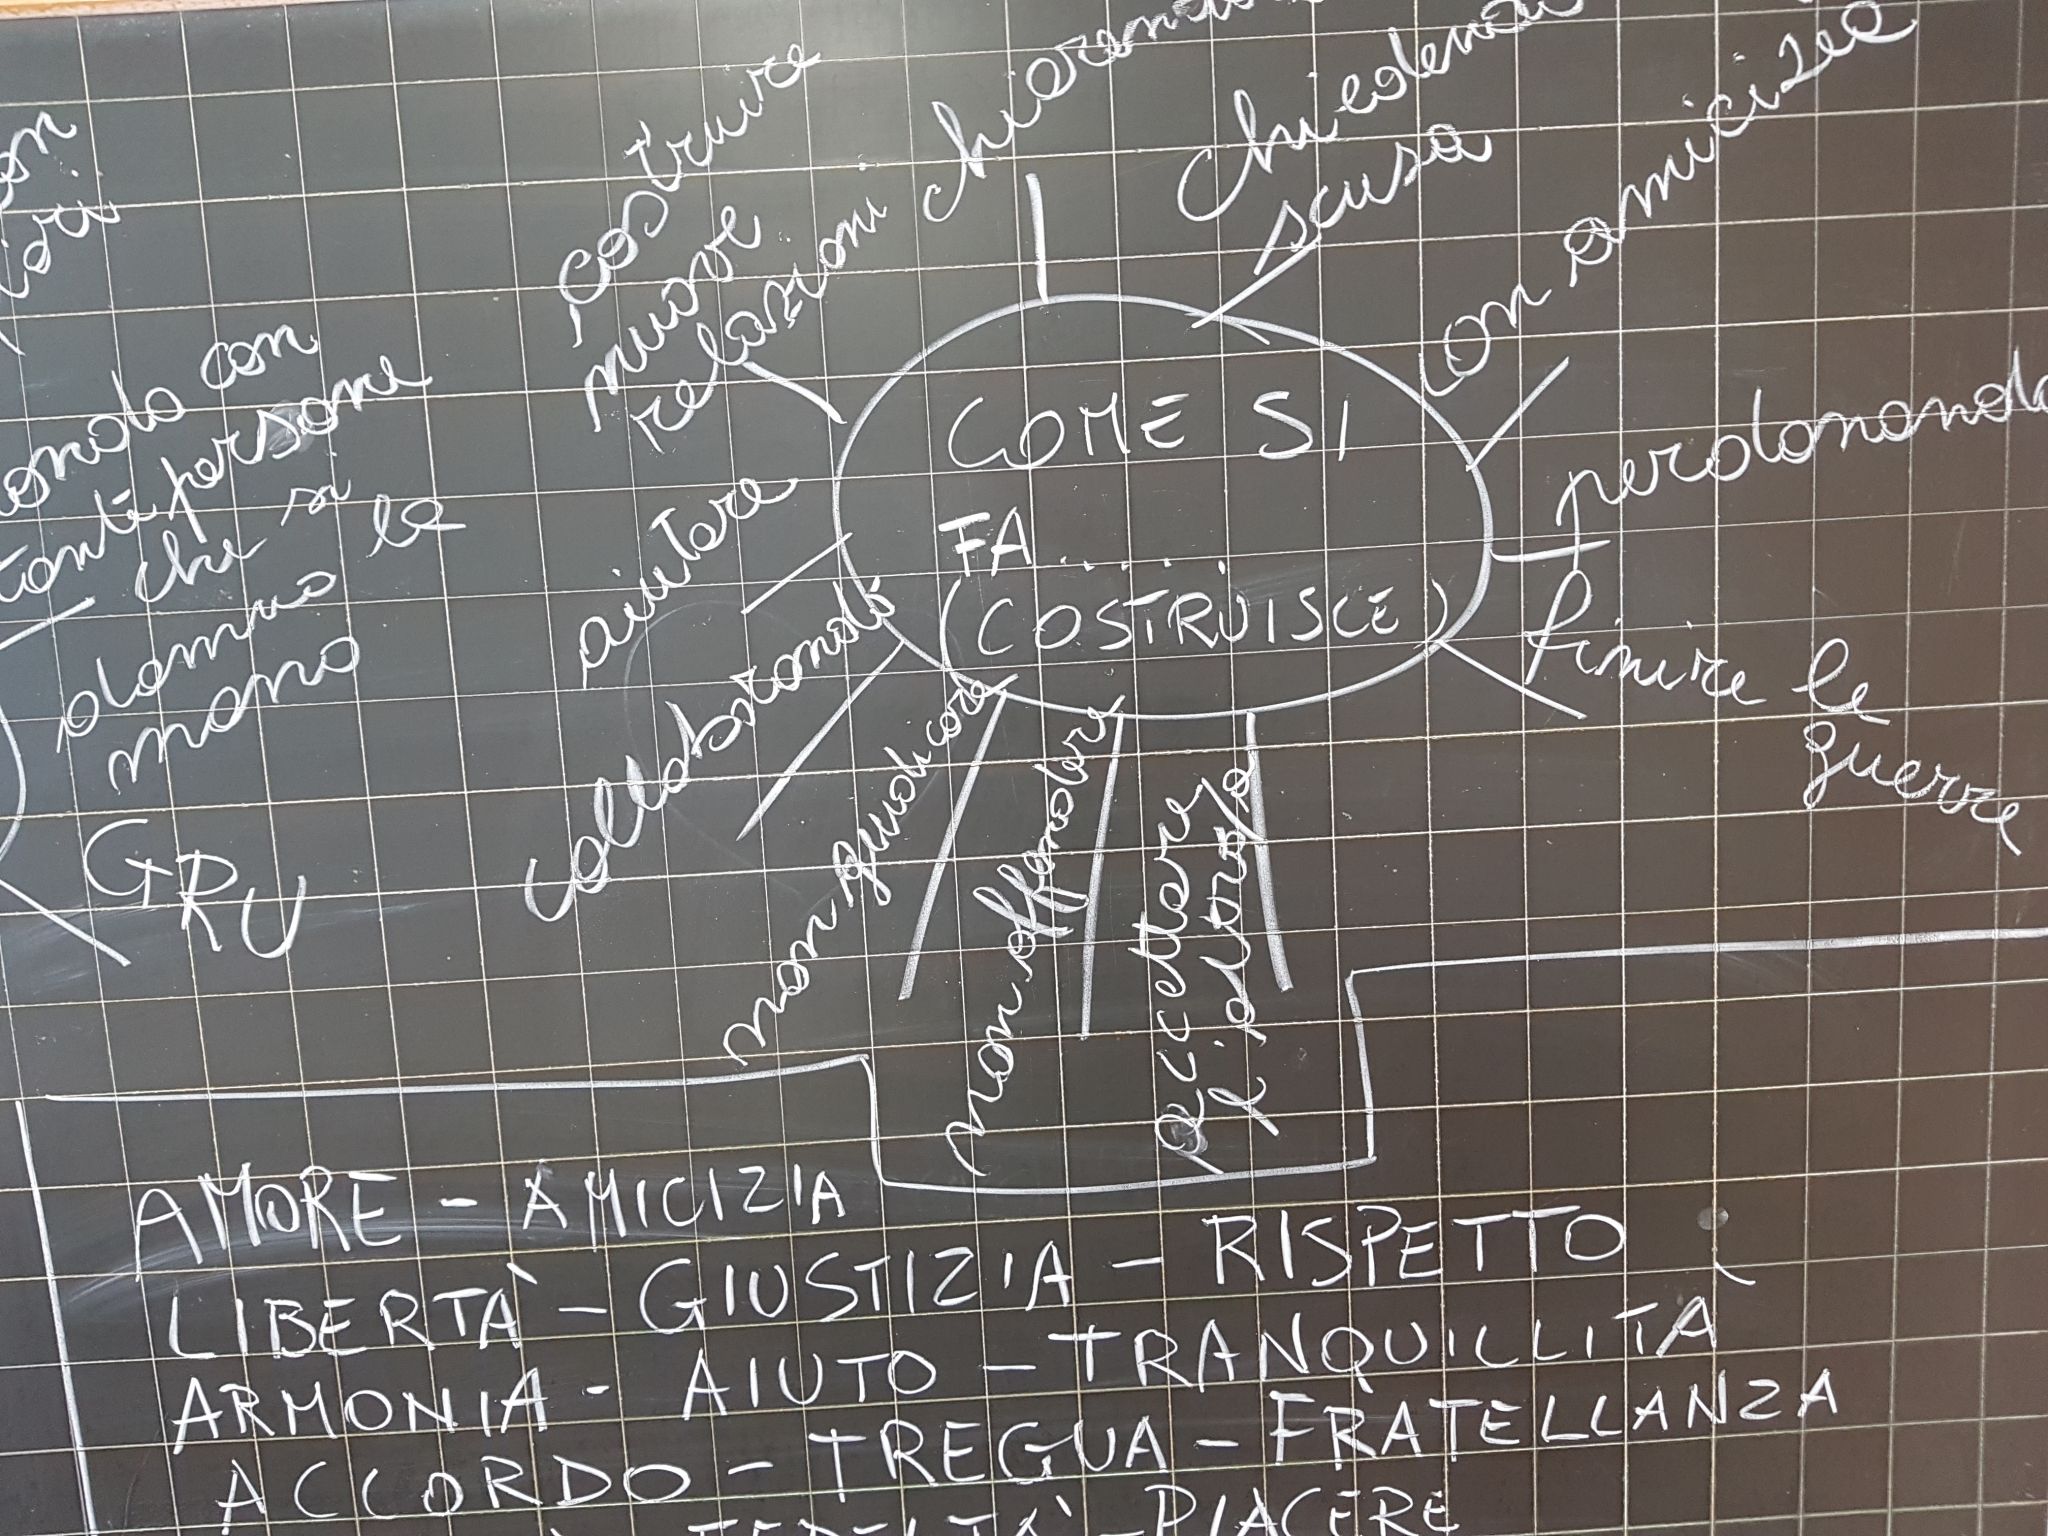 costruire
nuove
relazioni
chiedendo
scusa
con amicizia
perdonando
finire le
guerre
COME SI
FA ......
(COSTRUISCE)
aiutare
collaborando
non giudicare
non offendere
accettare
l'altro/a
con
tante persone
che si
danno la
mano
GRU
AMORE - AMICIZIA
LIBERTÀ - GIUSTIZIA - RISPETTO
ARMONIA - AIUTO - TRANQUILLITÀ
ACCORDO - TREGUA - FRATELLANZA
FEDELTÀ - PIACERE